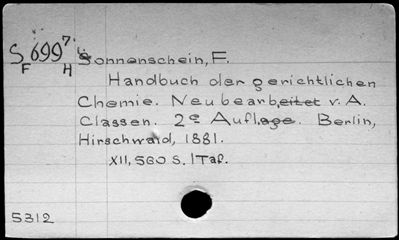 S 699⁷
F H
Sonnenschein, F.
Handbuch der gerichtlichen
Chemie. Neu bearbeitet v. A.
Classen. 2e Auflage. Berlin,
Hirschwald, 1881.
XII, 560 S. 1 Taf.
5312